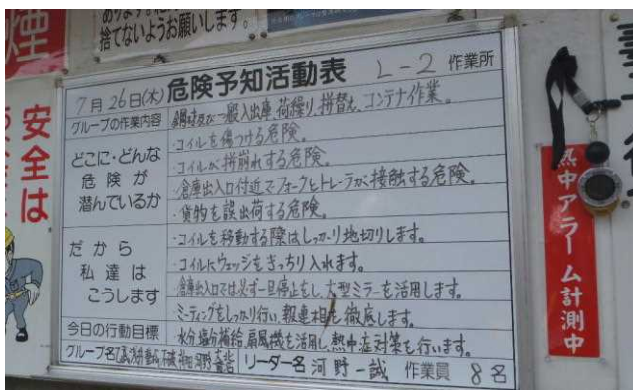 煙
捨てないようお願いします。
安全は
7月26日(木) 危険予知活動表 L-2 作業所
グループの作業内容 鋼材及び一般入出庫、荷繰り、拼替え、コンテナ作業。
どこに・どんな
危険が
潜んでいるか
・コイルを傷つける危険。
・コイルが拼崩れする危険。
・倉庫出入口付近でフォークとトレーラーが接触する危険。
・貨物を誤出荷する危険。
だから
私達は
こうします
・コイルを移動する際はしっかり地切りします。
・コイルにウェッジをきっちり入れます。
・倉庫出入口では必ず一旦停止をし、大型ミラーを活用します。
・ミーティングをしっかり行い、報連相を徹底します。
今日の行動目標 水分塩分補給、扇風機を活用し、熱中症対策を行います。
グループ名 リーダー名 河野一誠 作業員 8名
熱中アラーム計測中